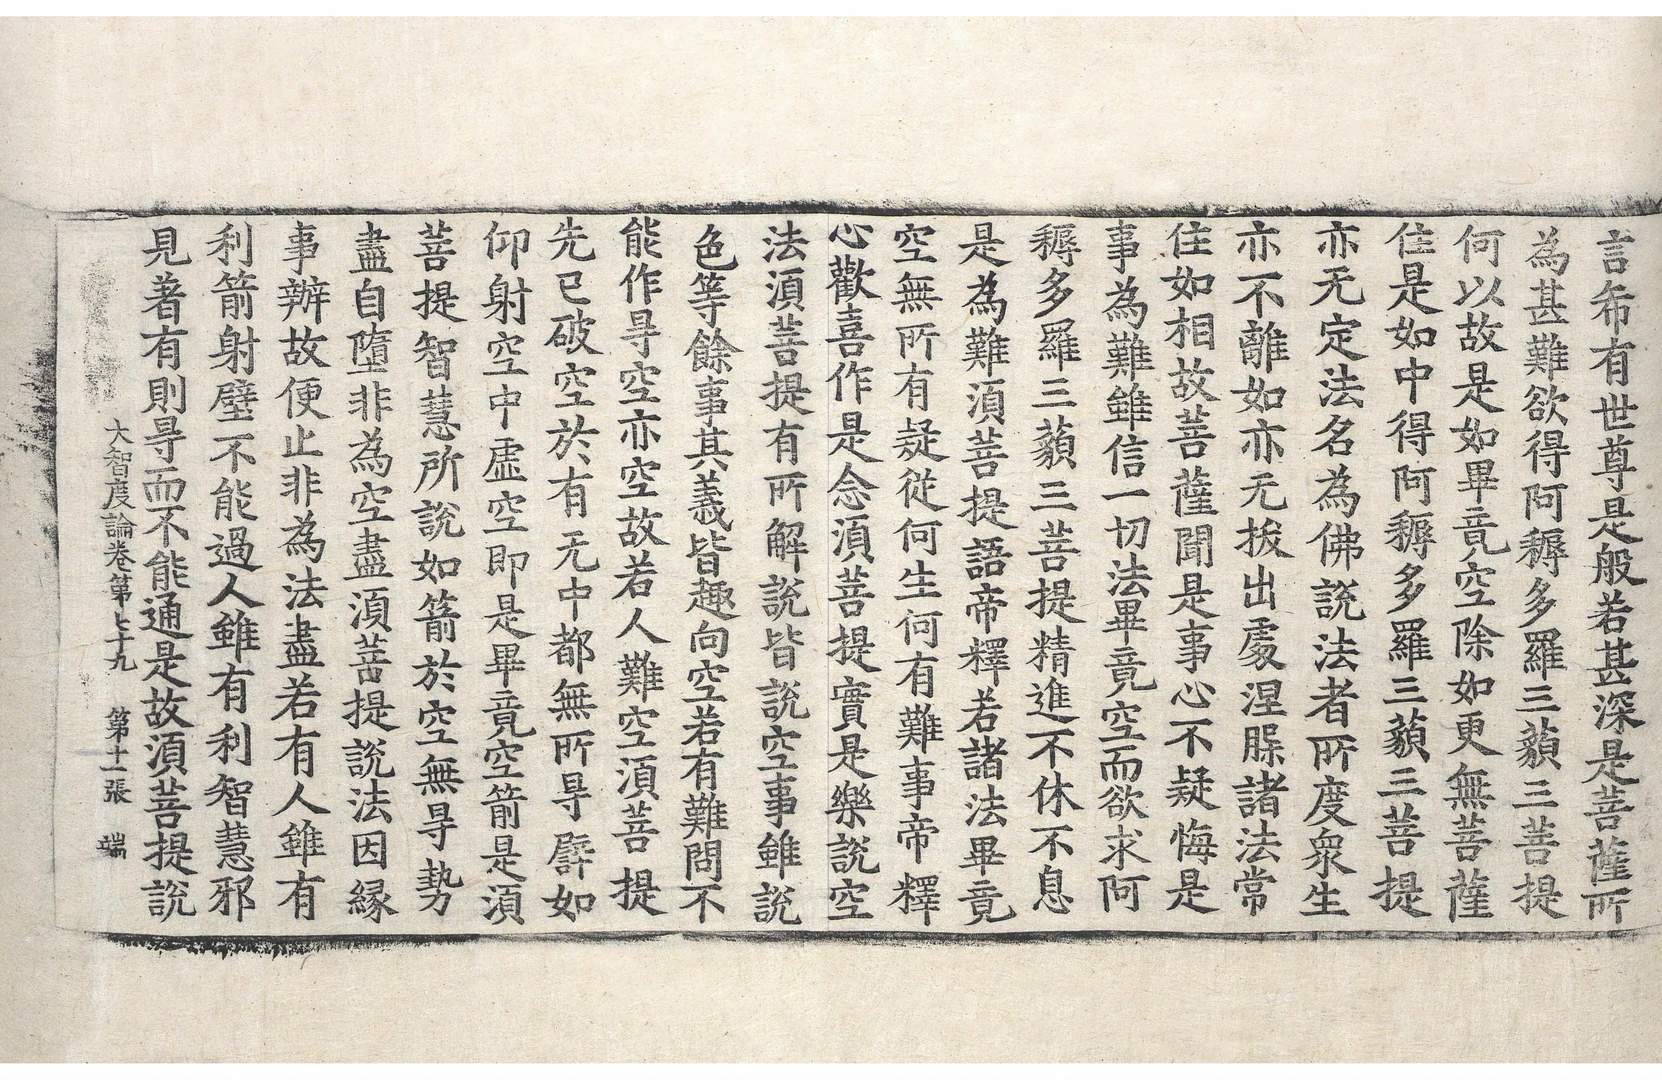 言希有世尊是般若甚深是菩薩所
為甚難欲得阿耨多羅三藐三菩提
何以故是如畢竟空除如更無菩薩
住是如中得阿耨多羅三藐三菩提
亦无定法名為佛說法者所度衆生
亦不離如亦无拔出處涅槃諸法常
住如相故菩薩聞是事心不疑悔是
事為難雖信一切法畢竟空而欲求阿
耨多羅三藐三菩提精進不休不息
是為難湏菩提語帝釋若諸法畢竟
空無所有疑從何生何有難事帝釋
心歡喜作是念湏菩提實是樂說空
法湏菩提有所解說皆說空事雖說
色等餘事其義皆趣向空若有難問不
能作㝵空亦空故若人難空湏菩提
先已破空於有无中都無所㝵譬如
仰射空中虛空即是畢竟空箭是湏
菩提智慧所說如箭於空無㝵勢
盡自墮非為空盡湏菩提說法因緣
事辦故便止非為法盡若有人雖有
利箭射壁不能過人雖有利智慧邪
見著有則㝵而不能通是故湏菩提說
大智度論卷第七十九 第十一張 端